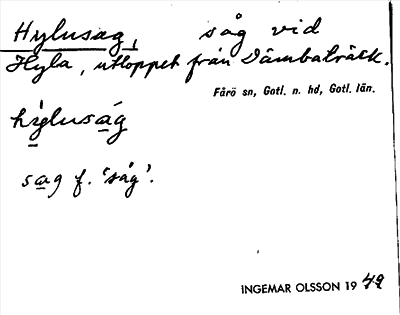 Hylusag, såg vid
Hyla, utloppet från Dämbaträsk.
Fårö sn, Gotl. n. hd, Gotl. län.
hýluság
sag f. 'såg'.
INGEMAR OLSSON 1949